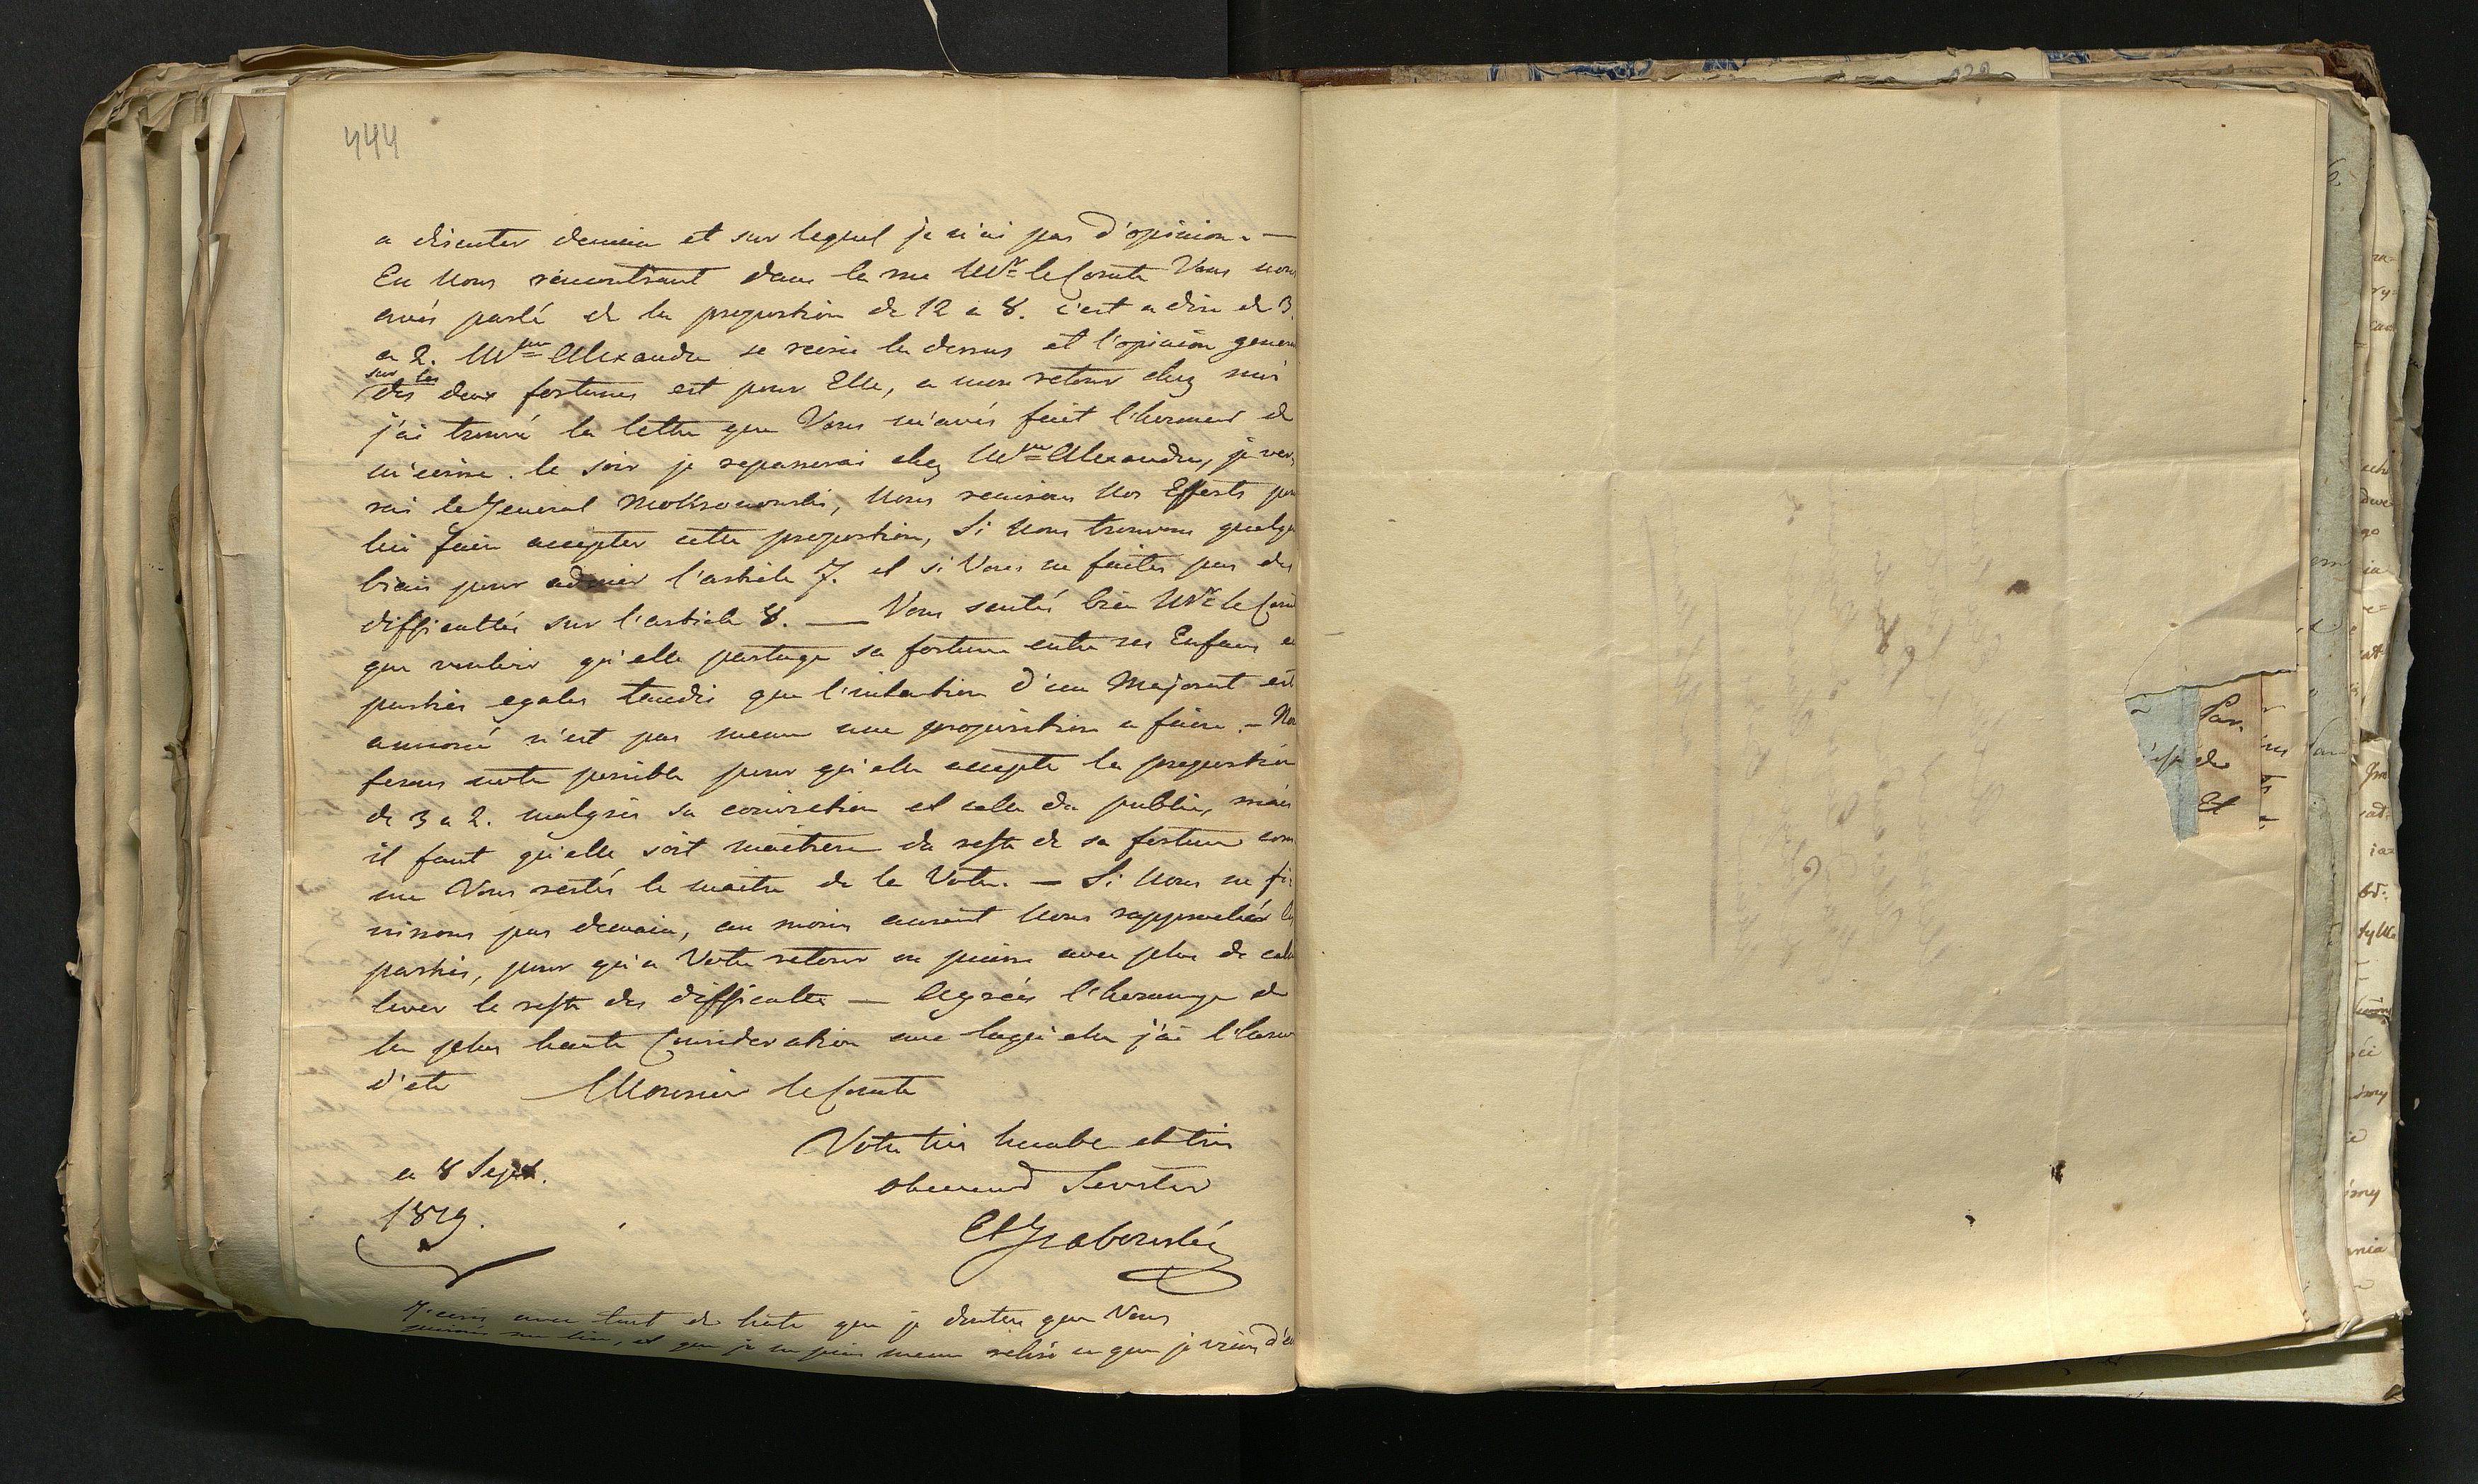 444
a discuter demain et sur lequel je n'ai pas d'opinion. —
En nous rencontrant dans la rue Mr. le Comte Vous nous
avés parlé de la proportion de 12 a 8. c'est a dire de 3.
a 2. Mme Alexandre se recrie la dessus et l'opinion gener
sur les
des deux fortunes est pour Elle, a mon retour chez moi
j'ai trouvé la lettre que Vous m'avés fait l'honneur de
m'ecrire. le soir je repasserai chez Mme Alexandre, je ver,
rai le General Mokronowski, Nous reunirons Nos Efforts pour
lui faire accepter cette proportion, Si Nous trouvons quelque
biais pour l'article 7. et si Vous ne faites pas des
difficultés sur l'article 8. — Vous sentés bien Mr. le Comte
que vouloir qu'elle partage sa fortune entre ses Enfans en
parties egales tandis que l'intention d'un Majorat est
annoncé n'est pas meme une proposition a faire. — Nous
ferons notre possible pour qu'elle accepte la proportion
de 3 a 2. malgrès sa conviction et celle du public, mais
il faut qu'elle soit maitresse du reste de sa fortune com
me Vous restés le maitre de la Votre. — Si Nous ne fi
nissons pas demain, au moins auront Nous rapprochés les
parties, pour qu'a Votre retour on puisse avec plus de calme
lever le reste des difficultés — Agreés l'homage de
la plus haute Consideration avec laquelle j'ai l'honneur
d'etre Monsieur le Comte
Votre très humble et très
obeissant Serviteur
ce 8 Sept.
1819.
Et Grabowski
J'ecris avec tant de hate que je doute que Vous
puissiés me lire, et que je ne puis meme relire ce que je viens d'ec
Par
de
Et